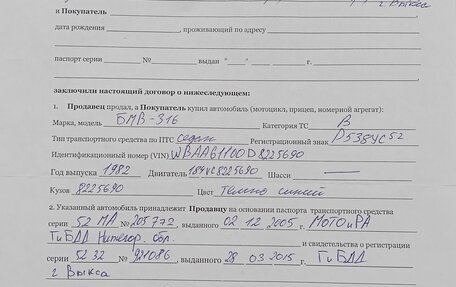 г. Выкса
и Покупатель
дата рождения , проживающий по адресу
паспорт серии № выдан "___" г.
заключили настоящий договор о нижеследующем:
1. Продавец продал, а Покупатель купил автомобиль (мотоцикл, прицеп, номерной агрегат):
Марка, модель БМВ-316 Категория ТС В
Тип транспортного средства по ПТС Седан Регистрационный знак Р538УС 52
Идентификационный номер (VIN) WBAAG1100D8225690
Год выпуска 1982 Двигатель 184VC8225690 Шасси —
Кузов 8225690 Цвет Темно синий
2. Указанный автомобиль принадлежит Продавцу на основании паспорта транспортного средства
серии 52 МА № 205772, выданного 02 12 2005 г. МОТО и РА
ГиБДД Нижегор. обл. и свидетельства о регистрации
серии 52 32 № 921086, выданного 28 03 2015 г. ГиБДД
г Выкса